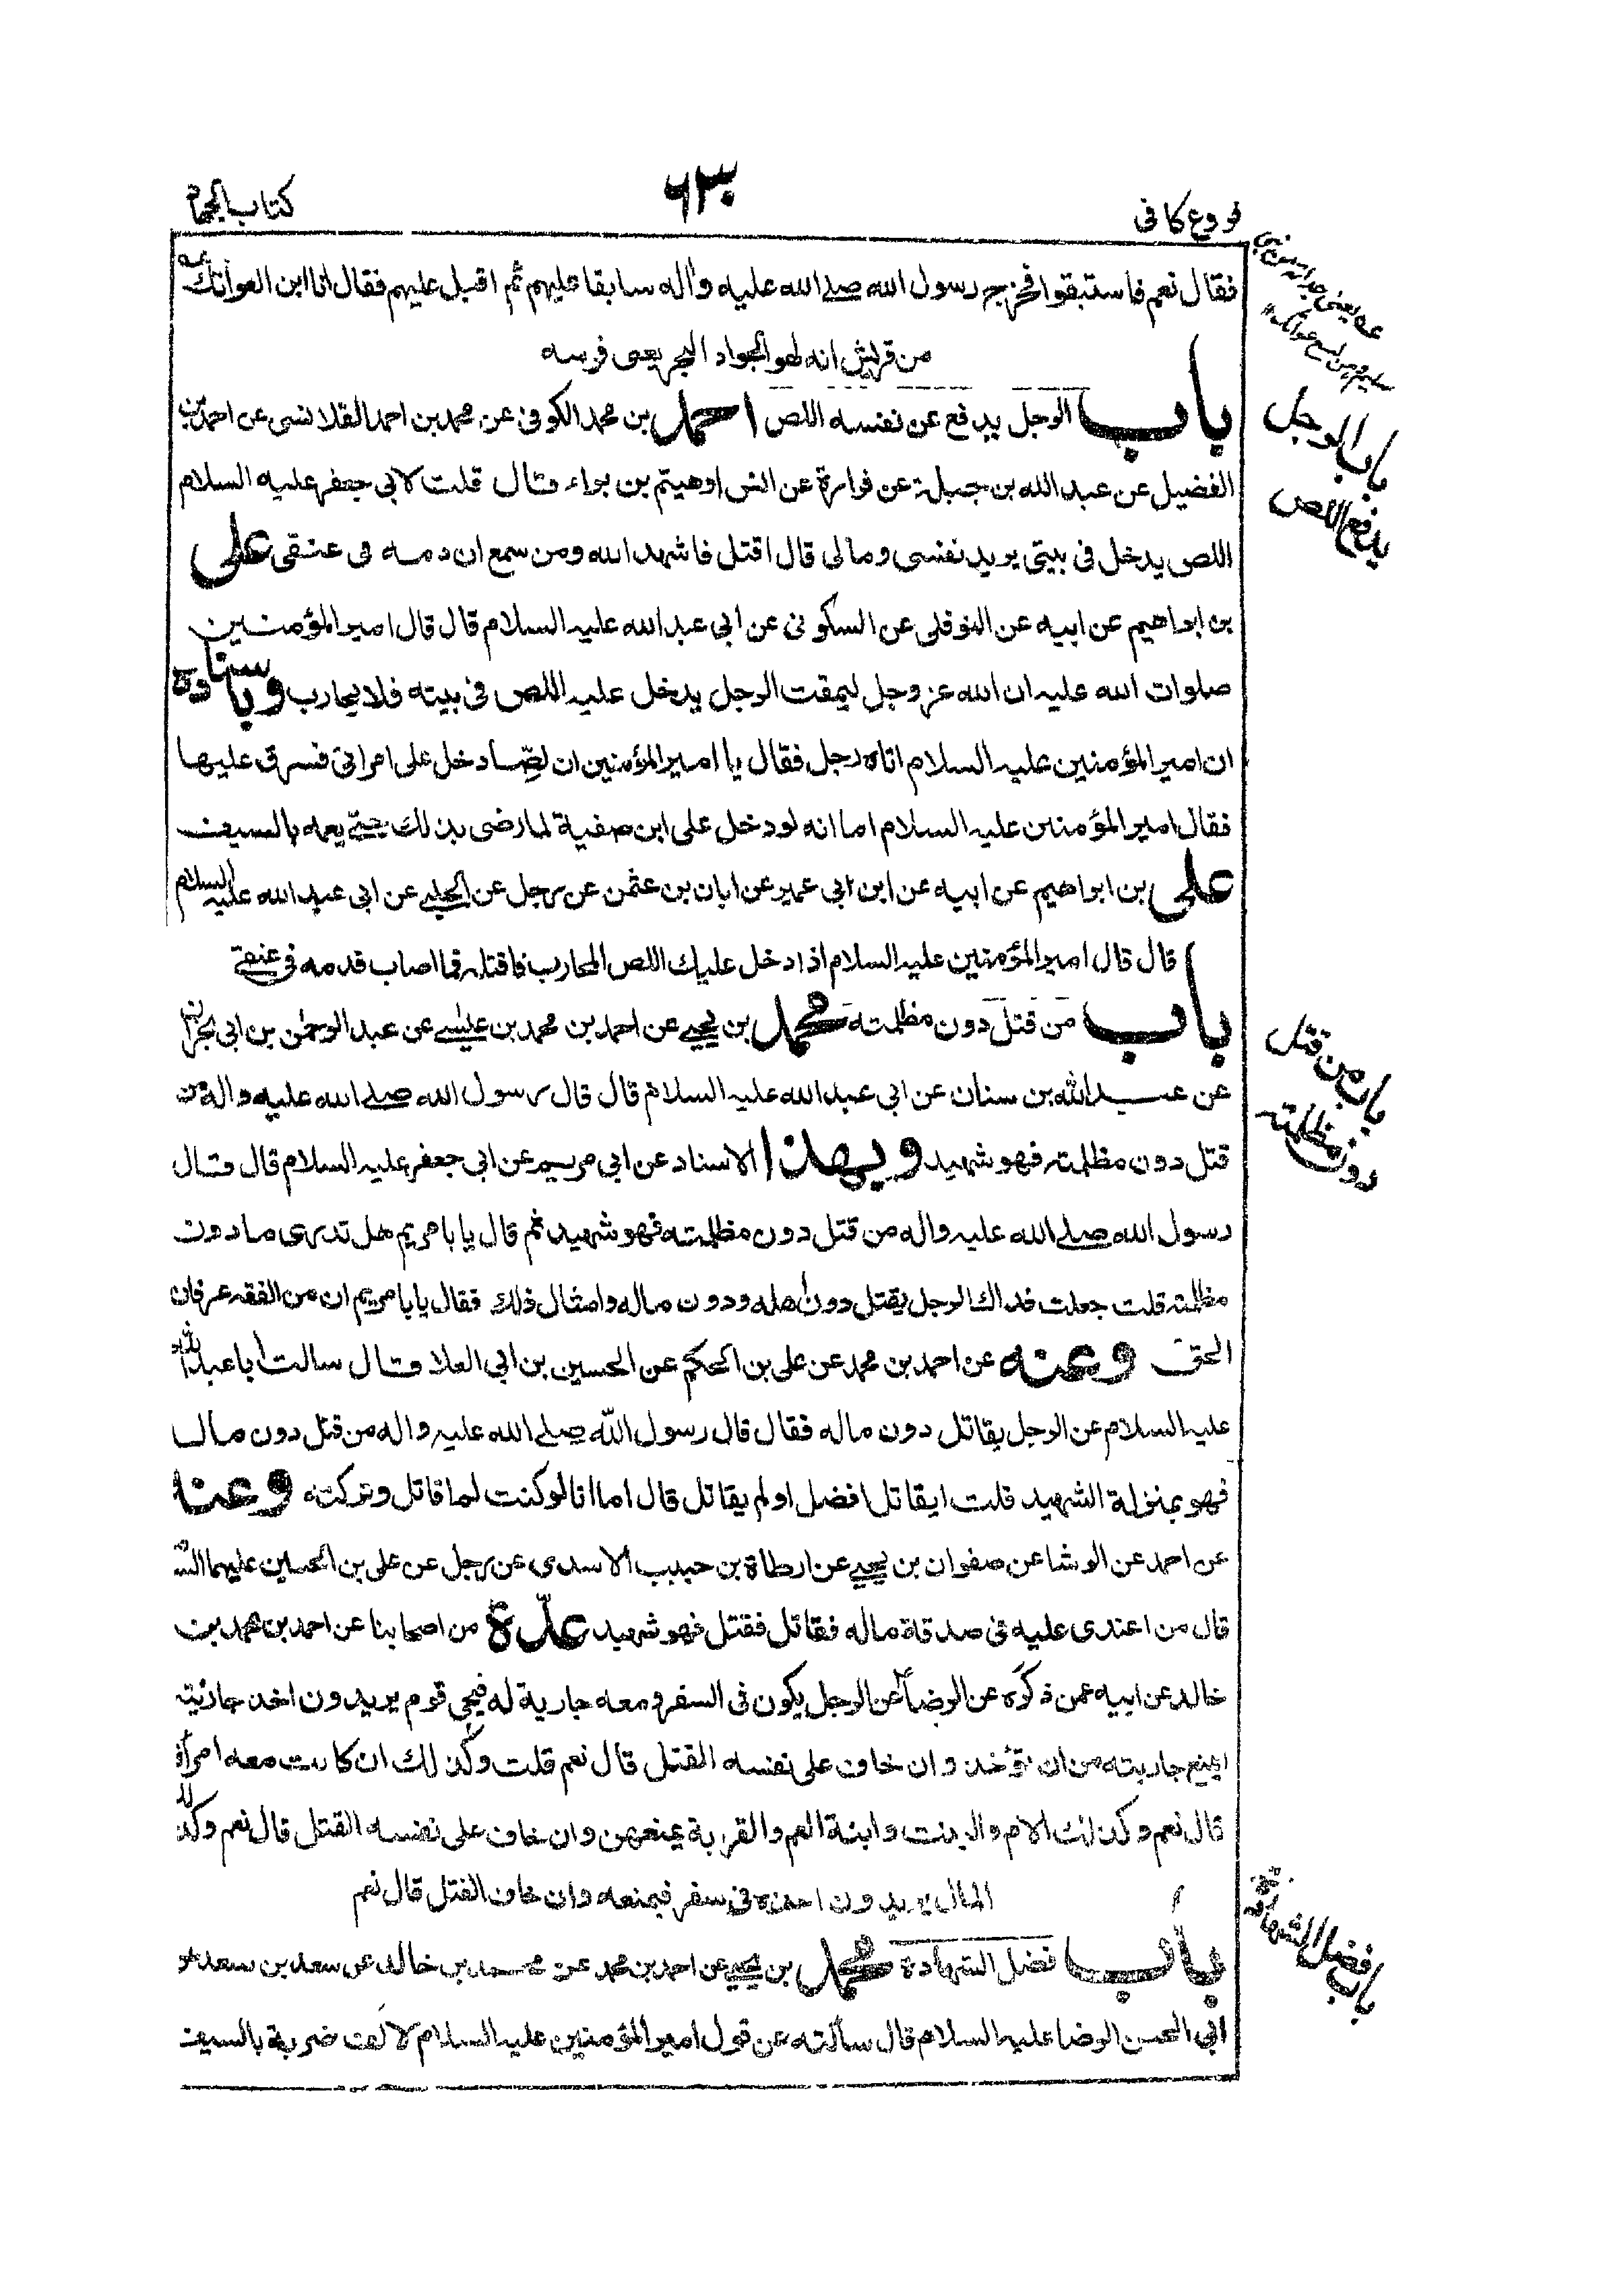 فروع كافى
٦٣٠
كتاب الجهاد
فقال نعم فاستبقوا فخرج رسول الله صلى الله عليه واله سابقا عليهم ثم اقبل عليهم فقال انا ابن العواتك
من قريش انه لهو الجواد البحر يعنى فرسه
باب الرجل يدفع عن نفسه اللص احمد بن محمد الكوفى عن محمد بن احمد القلانسى عن احمد بن
الفضيل عن عبد الله بن جبلة عن فزارة عن انس او هيثم بن براء قال قلت لابى جعفر عليه السلام
اللص يدخل فى بيتى يريد نفسى ومالى قال اقتل فاشهد الله ومن سمع ان دمه فى عنقى على
بن ابراهيم عن ابيه عن النوفلى عن السكونى عن ابى عبد الله عليه السلام قال قال امير المؤمنين
صلوات الله عليه ان الله عز وجل ليمقت الرجل يدخل عليه اللص فى بيته فلا يحارب وباسناده
ان امير المؤمنين عليه السلام اتاه رجل فقال يا امير المؤمنين ان لصّا دخل على امراتى فسرق عليها
فقال امير المؤمنين عليه السلام اما انه لو دخل على ابن صفية لما رضى بذلك حتى يعمه بالسيف
على بن ابراهيم عن ابيه عن ابن ابى عمير عن ابان بن عثمن عن رجل عن الحلبى عن ابى عبد الله عليه السلام
قال قال امير المؤمنين عليه السلام اذا دخل عليك اللص المحارب فاقتله فما اصاب فدمه فى عنقى
باب من قتل دون مظلمته محمد بن يحيى عن احمد بن محمد بن عيسى عن عبد الرحمن بن ابى نجران
عن عبد الله بن سنان عن ابى عبد الله عليه السلام قال قال رسول الله صلى الله عليه واله من
قتل دون مظلمته فهو شهيد وبهذا الاسناد عن ابى مريم عن ابى جعفر عليه السلام قال قال
رسول الله صلى الله عليه واله من قتل دون مظلمته فهو شهيد ثم قال يا با مريم هل تدرى ما دون
مظلمته قلت جعلت فداك الرجل يقتل دون اهله ودون ماله وامثال ذلك فقال يا با مريم ان من الفقه عرفان
الحق وعنه عن احمد بن محمد عن على بن الحكم عن الحسين بن ابى العلا قال سالت ابا عبد الله
عليه السلام عن الرجل يقاتل دون ماله فقال قال رسول الله صلى الله عليه واله من قتل دون مال
فهو بمنزلة الشهيد قلت ايقاتل افضل او لم يقاتل قال اما انا لو كنت لما قاتل وتركته وعنه
عن احمد عن الوشا عن صفوان بن يحيى عن ارطاة بن حبيب الاسدى عن رجل عن على بن الحسين عليهما السّ
قال من اعتدى عليه فى صدقة ماله فقاتل فقتل فهو شهيد عدّة من اصحابنا عن احمد بن محمد بن
خالد عن ابيه عمن ذكره عن الرضا عن الرجل يكون فى السفر ومعه جارية له فيجى قوم يريدون اخذ جاريته
ايمنع جاريته من ان تؤخذ وان خاف على نفسه القتل قال نعم قلت وكذلك ان كانت معه امراة
قال نعم وكذلك الام والبنت وابنة العم والقرابة يمنعهن وان خاف على نفسه القتل قال نعم وكذلك
المال يريدون اخذه فى سفر فيمنعه وان خاف القتل قال نعم
باب فضل الشهادة محمد بن يحيى عن احمد بن محمد عن محمد بن خالد عن سعد بن سعد عن
ابى الحسن الرضا عليه السلام قال سالته عن قول امير المؤمنين عليه السلام لالف ضربة بالسيف
باب الرجل
يدفع اللص
باب من قتل
دون مظلمته
باب فضل الشهادة